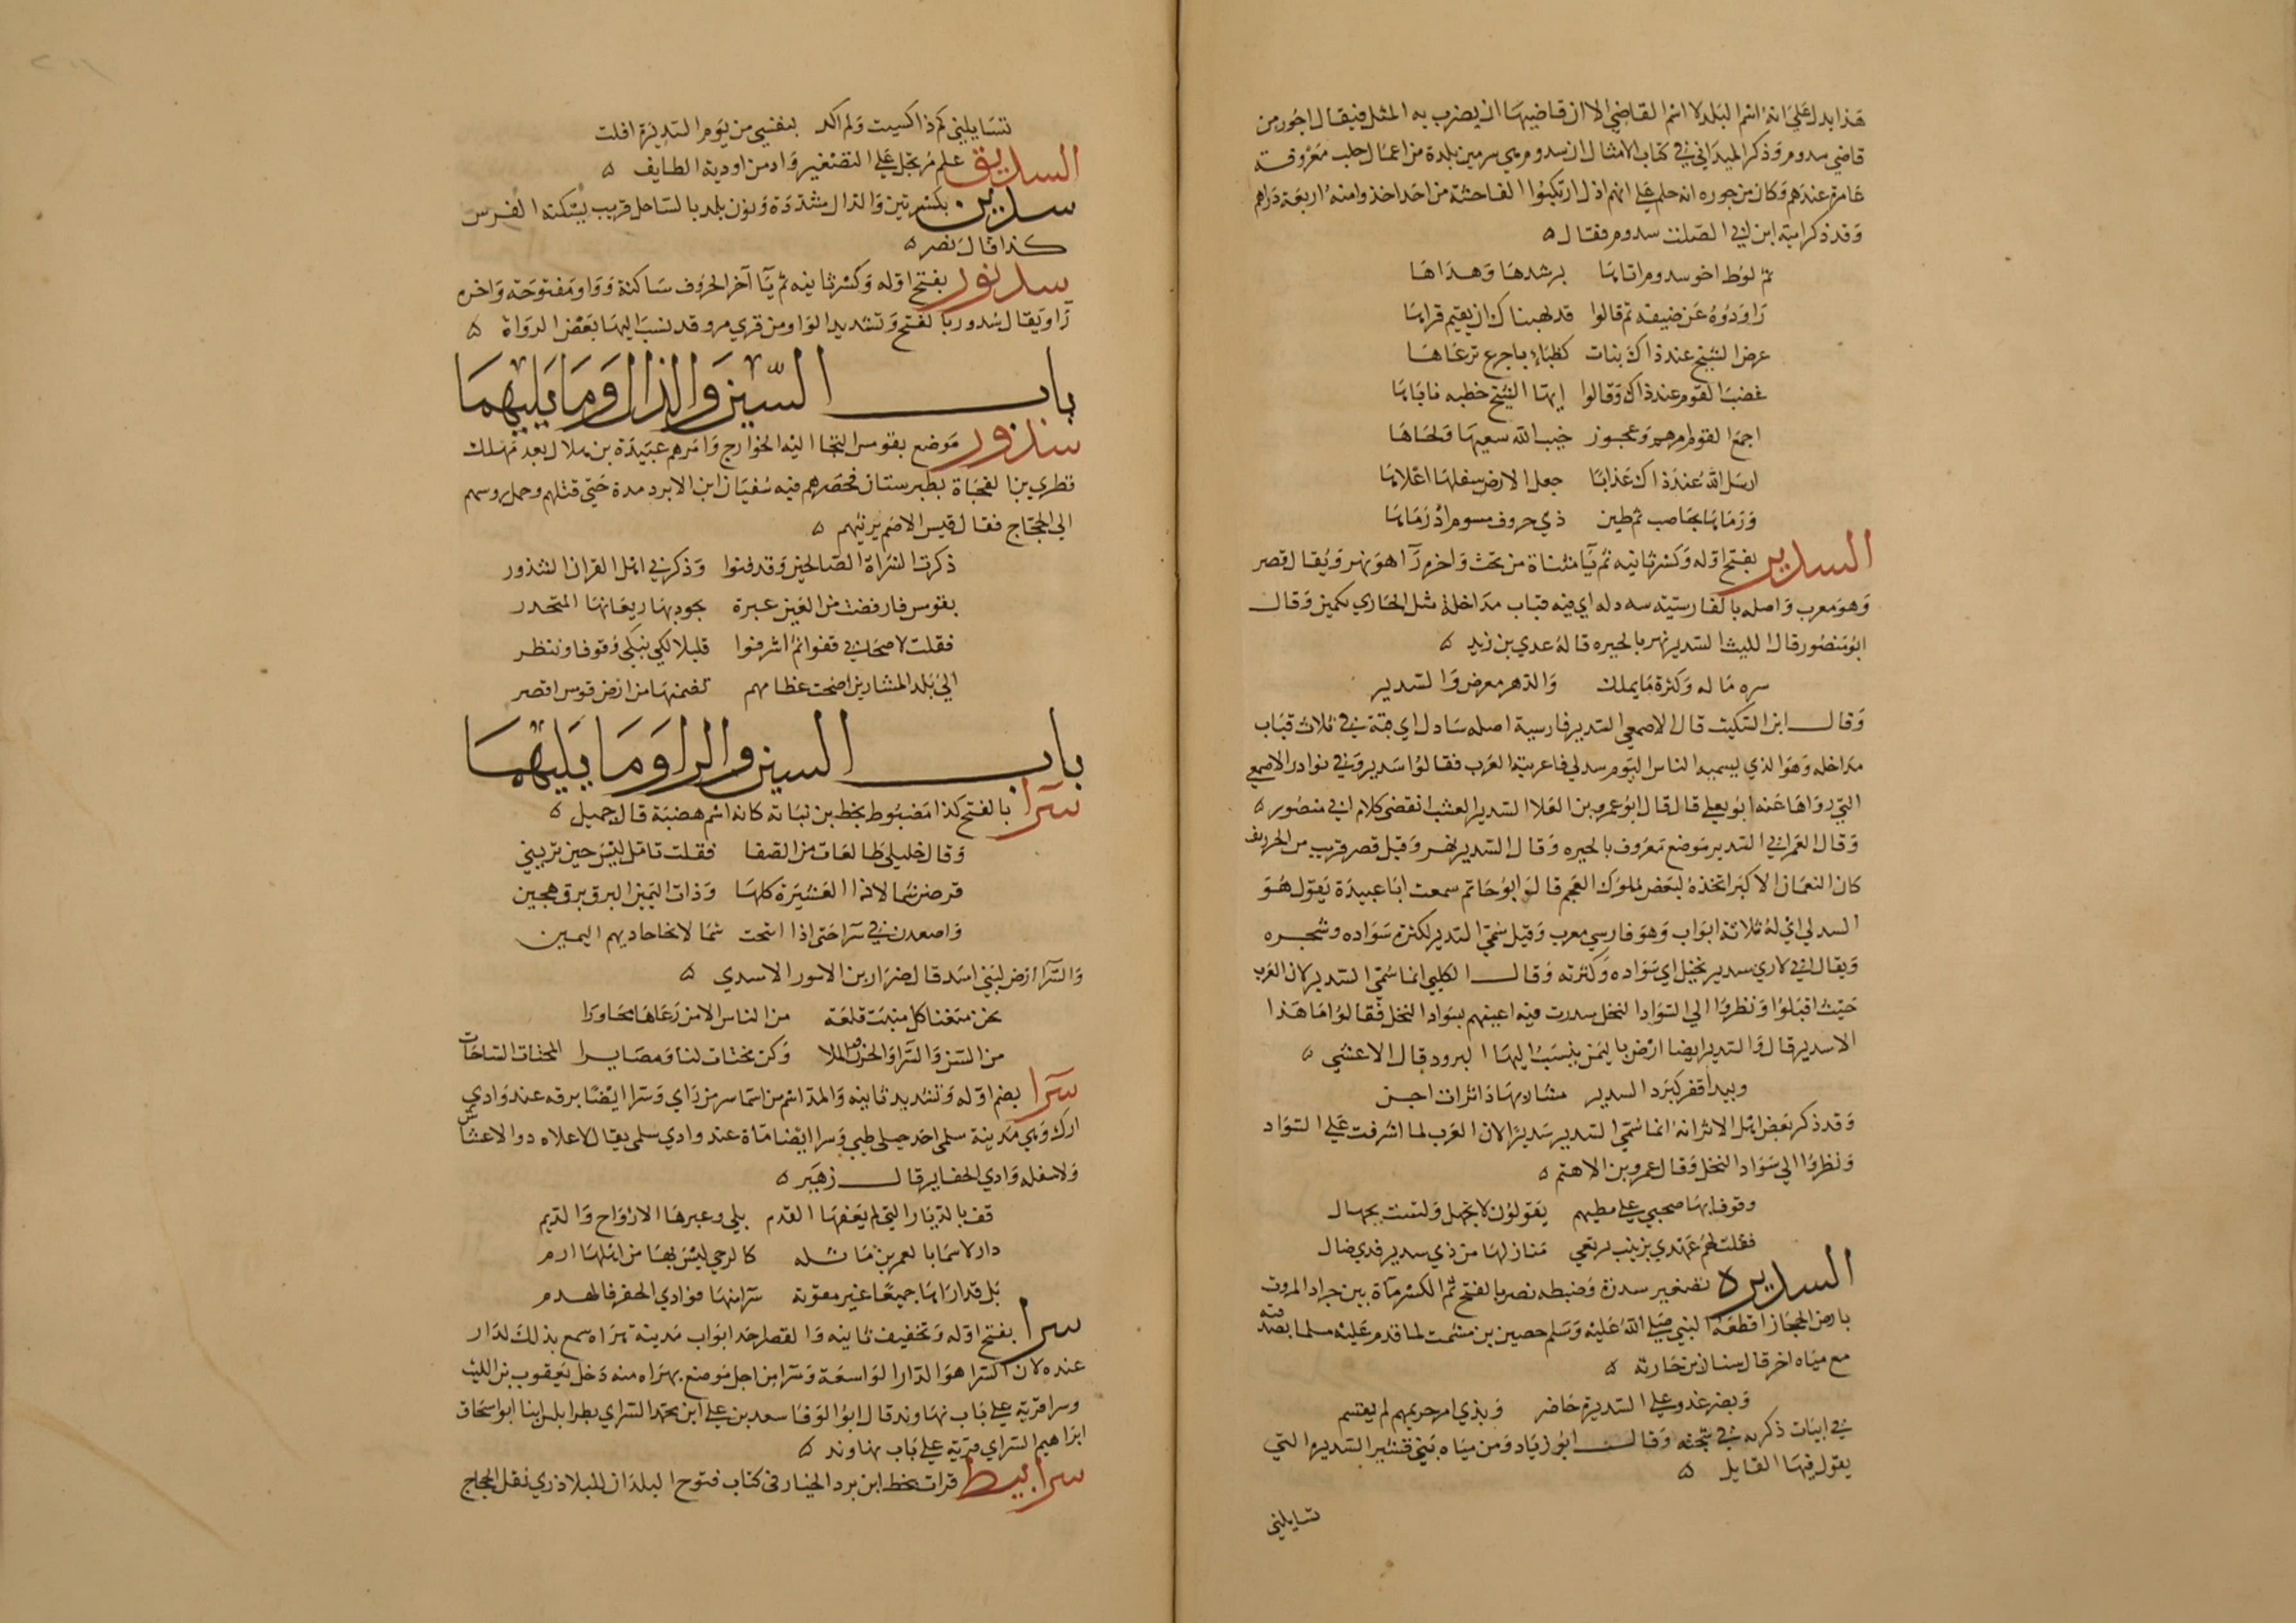 هذا يدل على انه اسم البلد لا اسم القاضي الا ان قاضيها ان يضرب به المثل فيقال اجور من
قاضي سدوم وذكر الميداني في كتاب الامثال ان سدوم هي سرمين بلدة من اعمال حلب معروفة
عامرة عندهم وكان من جوره انه حكم على انهم اذا ارتكبوا الفاحشة من احد اخذوا منه اربعة دراهم
وقد ذكر امية ابن ابي الصلت سدوم فقال ه
ثم لوط اخو سدوم اتاها برشدها وهداها
راودوه عن ضيفه ثم قالوا قد نهيناك ان يقيم قراها
عرض الشيخ عند ذاك بنات كظباء باجرع ترعاها
غضب القوم عند ذاك وقالوا ايها الشيخ خطبه ناباها
اجمع القوم امرهم وعجوز خيب الله سعيها ولحاها
ارسل الله عند ذاك عذابا جعل الارض سفلها اعلاها
ورماها بحاصب ثم طين ذي حروف مسوم اذ رماها
السدير بفتح اوله وكسر ثانيه ثم يا مثناة من تحت واخره را هو نهر ويقال قصر
وهو معرب واصله بالفارسيته سه دله اي فيه قباب مداخلة مثل الحاري بكمين وقال
ابو منصور قال الليث السدير نهر بالحيره قاله عدي بن زيد ه
سره ماله وكثرة ما يملك والدهر معرض والسدير
وقال ابن السكيت قال الاصمعي السدير فارسية اصله سادل اي قبة في ثلاث قباب
مداخله وهو الذي يسميه الناس اليوم سدلي فاعربته العرب فقالوا سدير وفي نوادر الاصمعي
التي رواها عنه ابو يعلي قال قال ابو عمرو بن العلا السدير العشب انقضى كلام ابي منصور ه
وقال العمراني السدير موضع معروف بالحيره وقال السدير نهر وقيل قصر قريب من الخورنق
كان النعمان الاكبر اتخذه لبعض ملوك العجم قال وابو حاتم سمعت ابا عبيدة يقول هو
السدلي اي له ثلاثة ابواب وهو فارسي معرب وقيل سمي السدير لكثرة سواده وشجره
ويقال اني لاري سدير نخيل اي سواده وكثرته وقال الكلبي انما سمي السدير لان العرب
حيث اقبلوا ونظروا الي السواد النخل سدرت فيه اعينهم بسواد النخل فقالوا ما هذا
الا سدير قال والسدير ايضا ارض باليمن ينسب اليها البرود قال الاعشي ه
وبيدا قفر كبرد السدير مشاربها داثرات اجن
وقد ذكر بعض اهل الاثر انه انما سمي السدير سديرا لان العرب لما اشرفت على السواد
ونظروا الي سواد النخل وقال عمرو بن الاهتم ه
وقوفا بها صحبي علي مطيهم يقولون لا تجهل ولست بجهال
فقلت لهم عهدي بزينب ترتعي منازلها من ذي سدير فذي ضال
السديره تصغير سدرة وضبطه نصر بالفتح ثم الكسر ماة بين جراد المروت
بارض الحجاز اقطعه النبي صلى الله عليه وسلم حصين بن مشمت لما قدم عليه مسلما بصدقته
مع مياه اخر قال سنان بن حارثه ه
وبضرغدو على السديرة حاضر وبذي امر حريمهم لم يقسم
في ابيات ذكرت في تتجنه وقال ابو زياد ومن مياه بني قشير السديره التي
يقول فيها القايل ه
تسايلني
تسايلني كم ذا كسيت ولم اكد بنفسي من يوم السديرة افلت
السديق علم مرتجل على التصغير واد من اودية الطايف ه
سدين بكسرتين والدال مشددة ونون بلد بالساحل قريب يسكنه الفرس
كذا قال نصر ه
سدنور بفتح اوله وكسر ثانيه ثم يا آخر الحروف ساكنة وواو مفتوحة واخره
را ويقال سدور بالفتح وتشديد الواو من قري مرو قد نسب اليها بعض الرواة ه
باب السين والذال وما يليهما
سذور موضع بقومس التجا اليه الخوارج وامرهم عبيدة بن هلال بعد مهلك
قطري بن الفجاة بطبرستان فحصرهم فيه سفيان ابن الابرد مدة حتي قتلهم وحمل روسهم
الي الحجاج فقال قيس الاصم يرثيهم ه
ذكرت الشراة الصالحين وقد فنوا وذكرني اهل القران السذور
بقومس فارفضت من العين عبرة يجود بها ريعانها المتحدر
فقلت لاصحابي قفوا ثم اشرفوا قليلا لكي نبكي وقوفا وننظر
الي بلد المشارين اضحت عظامهم تضمنها من ارض قومس اقصر
باب السين والرا وما يليهما
سرا بالفتح كذا مضبوط بخط بن نباته كانه اسم هضبة قال جميل ه
وقال خليلي طالعات من الصفا فقلت تامل ليس حين تريني
قرضن شمالا ذا العشيرة كلها وذات اليمين البرق برق هجين
واصعدن في سرا حتى اذا انتحت شمالا نحا حاديهم اليمين
والسرا ارض لبني اسد قال ضرار بن الازور الاسدي ه
نحن منعنا كل منبت قلعة من الناس الا من رعاها مجاورا
من السر والسرا والحزن والملا وكن مخنات لنا ومصايرا المخنات الساحات
سرا بضم اوله وتشديد ثانيه والمد اسم من اسما سر من راي وسرا ايضا برقه عند وادي
ارك وهي مدينة سلمى احد جبلي طيي وسرا ايضا ماة عند وادي سلمى يقال لاعلاه ذو الاعشاش
ولاسفله وادي الحفاير قال زهير ه
قف بالديار التي لم يعفها القدم بلي وغيرها الارواح والديم
دار لاسما بالغمرين ماثله كالرحي ليس بها من اهلها ارم
بل قد اراها جميعا غير مقوية سرا منها فوادي الحفر فالهدم
سرا بفتح اوله وتخفيف ثانيه والقصر احد ابواب مدينة هراه سمع بذلك لدار
عنده لان السرا هو الدار الواسعة وسرا من اجل موضع بهراه منه دخل يعقوب بن الليث
وسرا قرية على باب نهاوند قال ابو الوفا سعد بن علي ابن محمد السراي بطرابلس ابنا ابو اسحاق
ابراهيم السراي قرية على باب نهاوند ه
سرابيط قرات بخط ابن برد الخيار في كتاب فتوح البلدان للبلاذري نقل الحجاج